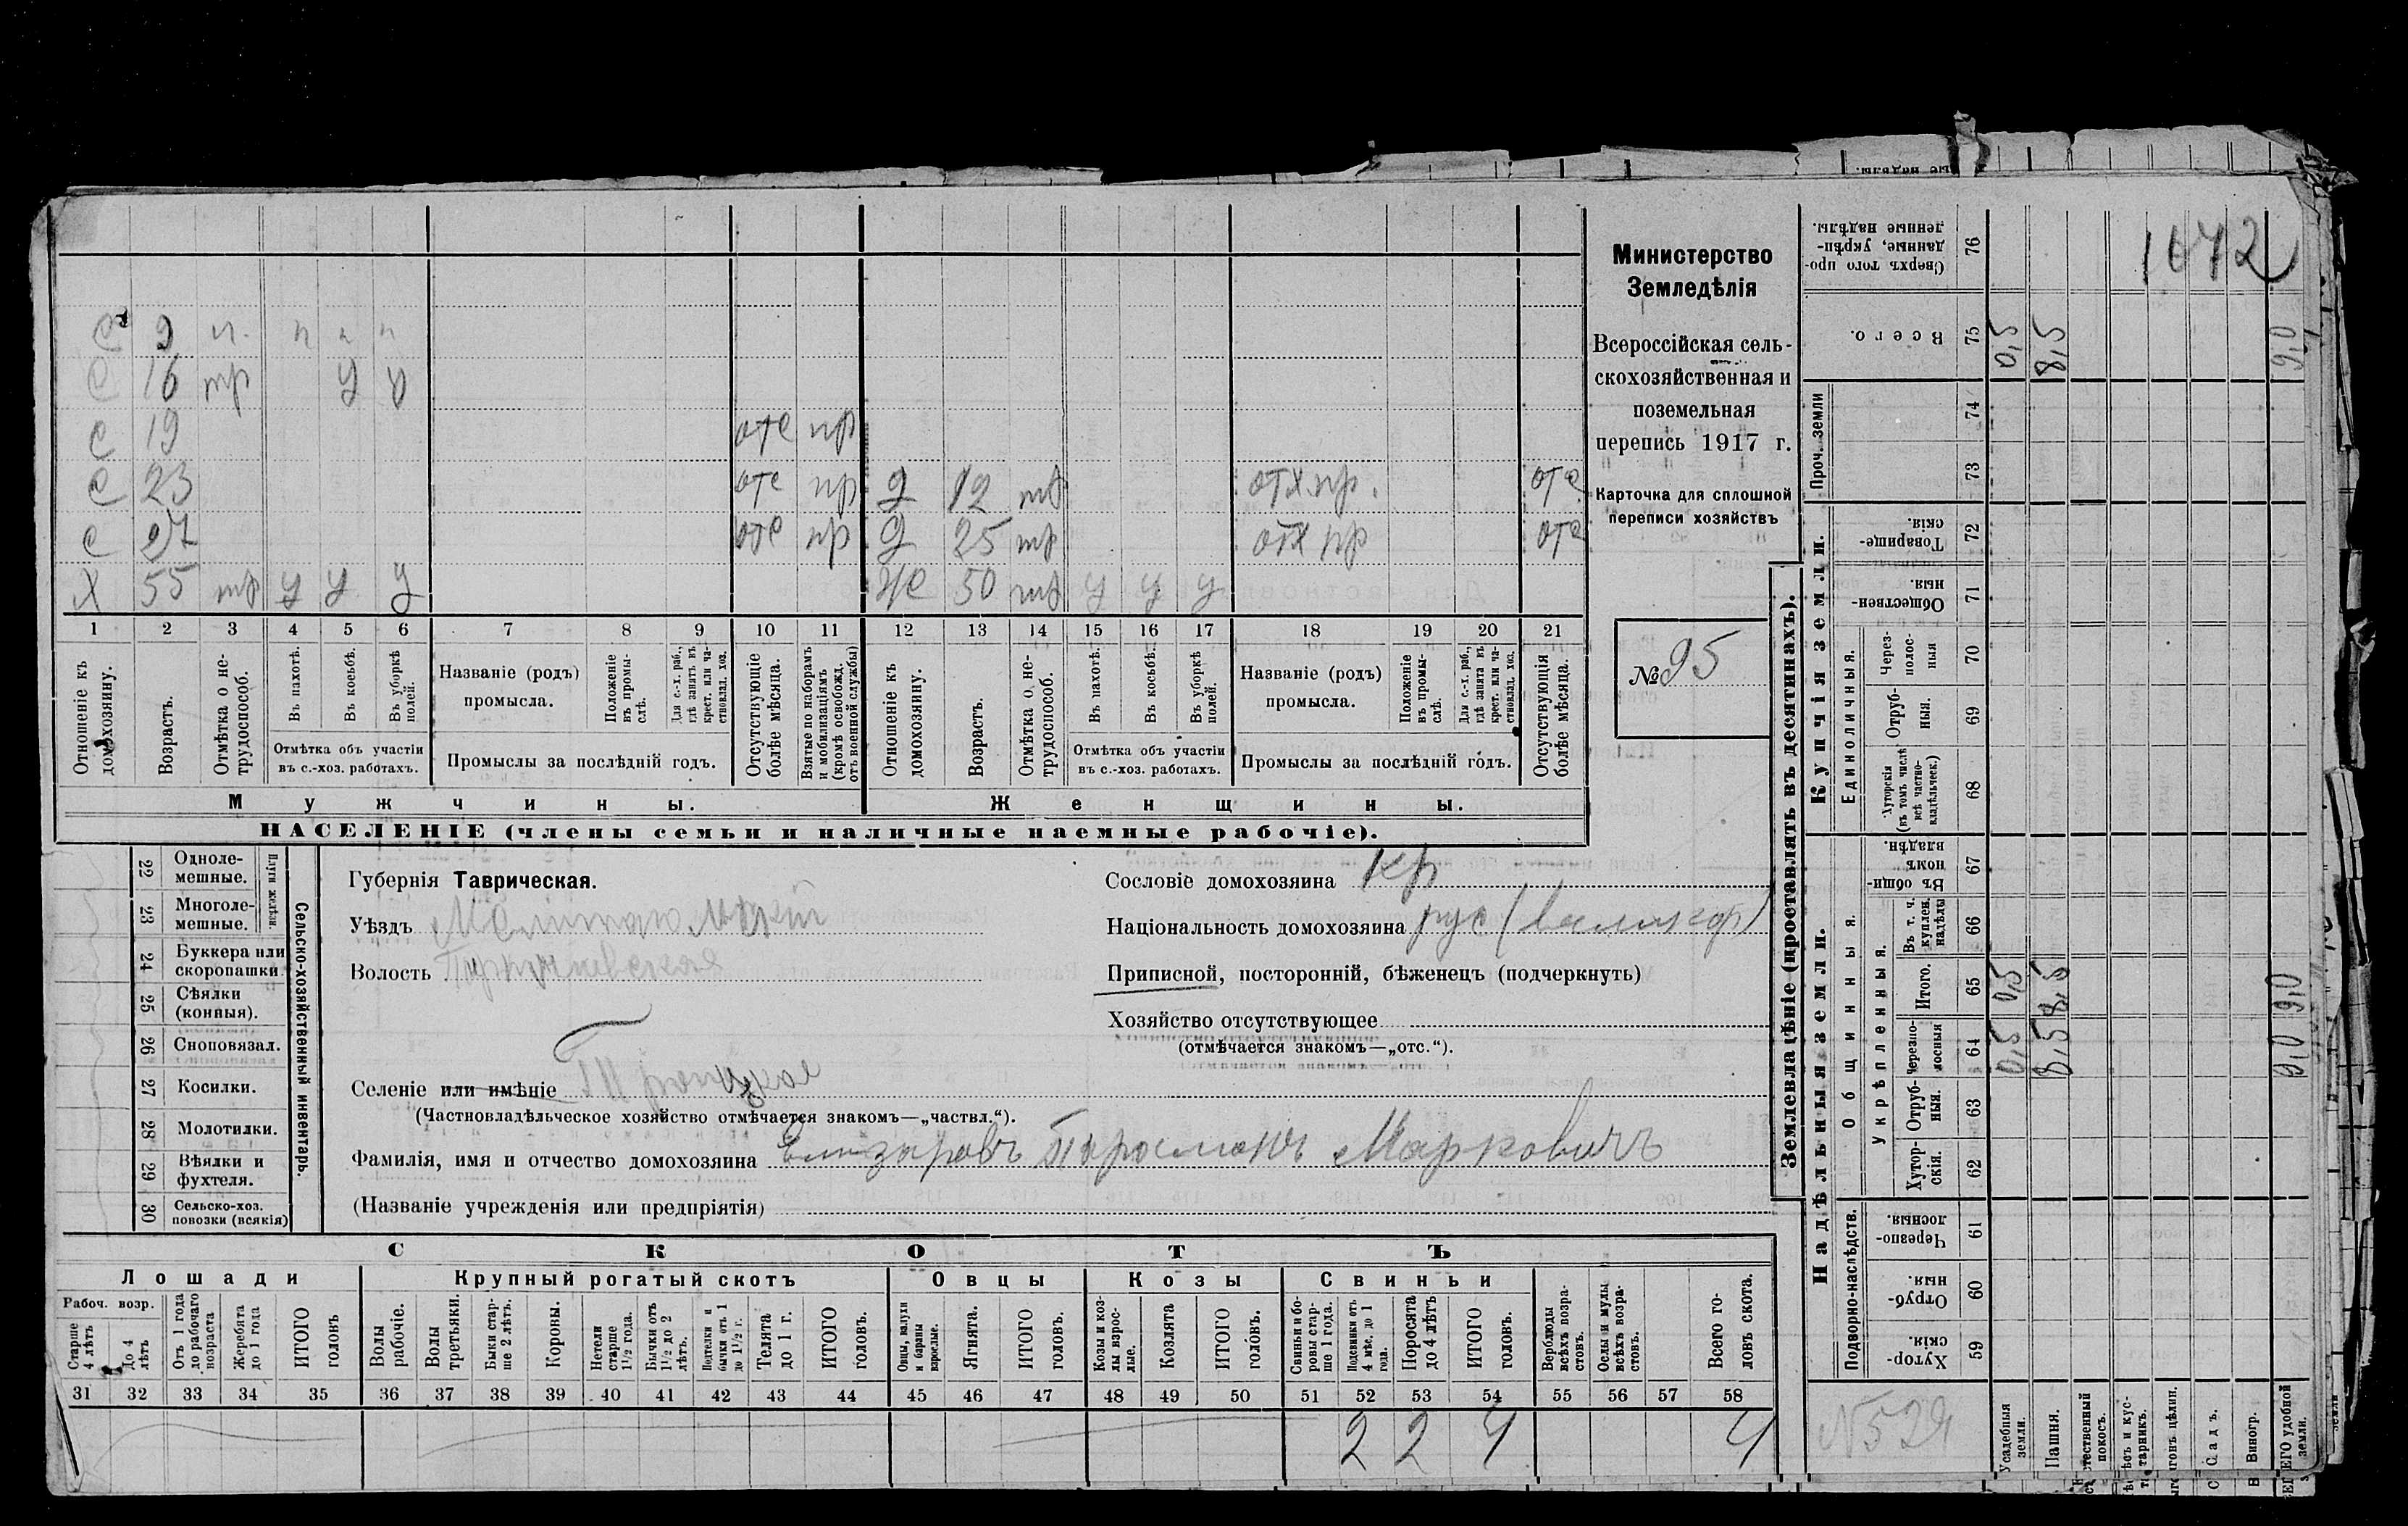 1072
с 9 н. н н н
с 16 тр у у
с 19 отс пр
с 23 отс пр д 12 тр отх пр. отс
с 27 отс пр д 25 тр отх пр отс
х 55 тр у у у же 50 тр у у у
1 2 3 4 5 6 7 8 9 10 11 12 13 14 15 16 17 18 19 20 21
Отношеніе къ домохозяину.
Возрастъ.
Отмѣтка о нетрудоспособ.
Въ пахотѣ.
Въ косьбѣ.
Въ уборкѣ полей.
Отмѣтка объ участіи въ с.-хоз. работахъ.
Названіе (родъ) промысла.
Положеніе въ промыслѣ.
Для с.-х. раб., гдѣ занятъ въ крест. или частновлад. хоз.
Промыслы за послѣдній годъ.
Отсутствующіе болѣе мѣсяца.
Взятые по наборамъ и мобилизаціямъ (кромѣ освобожд. отъ военной службы)
Отношеніе къ домохозяину.
Возрастъ.
Отмѣтка о нетрудоспособ.
Въ пахотѣ.
Въ косьбѣ.
Въ уборкѣ полей.
Отмѣтка объ участіи въ с.-хоз. работахъ.
Названіе (родъ) промысла.
Положеніе въ промыслѣ.
Для с.-х. раб., гдѣ занята въ крест. или частновлад. хоз.
Промыслы за послѣдній годъ.
Отсутствующія болѣе мѣсяца.
Мужчины. Женщины.
НАСЕЛЕНІЕ (члены семьи и наличные наемные рабочіе).
Министерство
Земледѣлія
Всероссійская сель-
скохозяйственная и
поземельная
перепись 1917 г.
Карточка для сплошной
переписи хозяйствъ
№ 95
Плуги желѣзн.
22 Одноле-мешные.
23 Многоле-мешные.
24 Буккера или скоропашки
25 Сѣялки (конныя).
26 Сноповязал.
27 Косилки.
28 Молотилки.
29 Вѣялки и фухтеля.
30 Сельско-хоз. повозки (всякія)
Сельско-хозяйственный инвентарь.
Губернія Таврическая.
Уѣздъ
Волость
Селеніе или имѣніе
(Частновладѣльческое хозяйство отмѣчается знакомъ—„частвл.“).
Фамилія, имя и отчество домохозяина Елизаровъ Парамонъ Марковичъ
(Названіе учрежденія или предпріятія)
Сословіе домохозяина кр
Національность домохозяина рус
Приписной, посторонній, бѣженецъ (подчеркнуть)
Хозяйство отсутствующее
(отмѣчается знакомъ—„отс.“).
СКОТЪ
Лошади Крупный рогатый скотъ Овцы Козы Свиньи
Рабоч. возр.
Старше 4 лѣтъ
До 4 лѣтъ
Отъ 1 года до рабочаго возраста
Жеребята до 1 года
ИТОГО головъ
Волы рабочіе.
Волы третьяки.
Быки старше 2 лѣтъ.
Коровы.
Нетели старше 1½ года.
Бычки отъ 1½ до 2 лѣтъ.
Подтелки и бычки отъ 1 до 1½ г.
Телята до 1 г.
ИТОГО головъ.
Овцы, валухи и бараны взрослые.
Ягнята.
ИТОГО головъ.
Козы и козлы взрослые.
Козлята
ИТОГО головъ.
Свиньи и боровы старше 1 года.
Подсвинки отъ 4 мѣс. до 1 года.
Поросята до 4 лѣтъ
ИТОГО головъ.
Верблюды всѣхъ возрастовъ.
Ослы и мулы всѣхъ возрастовъ.
Всего головъ скота.
31 32 33 34 35 36 37 38 39 40 41 42 43 44 45 46 47 48 49 50 51 52 53 54 55 56 57 58
2 2 4 4
Землевладѣніе (проставлять въ десятинахъ).
Надѣльныя земли. Купчія земли. Проч. земли
Подворно-наслѣдств.
Общинныя.
Укрѣпленныя.
Единоличныя.
59 Хуторскія.
60 Отрубныя.
61 Черезполосныя.
62 Хуторскія.
63 Отрубныя.
64 Черезполосныя 0,5 8,5 9,0
65 Итого. 0,5 8,5 9,0
66 Въ т. ч. куплен. надѣлы
67 Въ общинномъ владѣн.
68 Хуторскія (въ томъ числѣ всѣ частновладѣльческ.)
69 Отрубныя.
70 Черезполосныя
71 Общественныя.
72 Товарищескія.
73
74
75 Всего. 0,5 8,5 9,0
76 Сверхъ того проданные, укрѣпленные надѣлы.
Усадебныя земли.
Пашня.
Садъ.
Виногр.